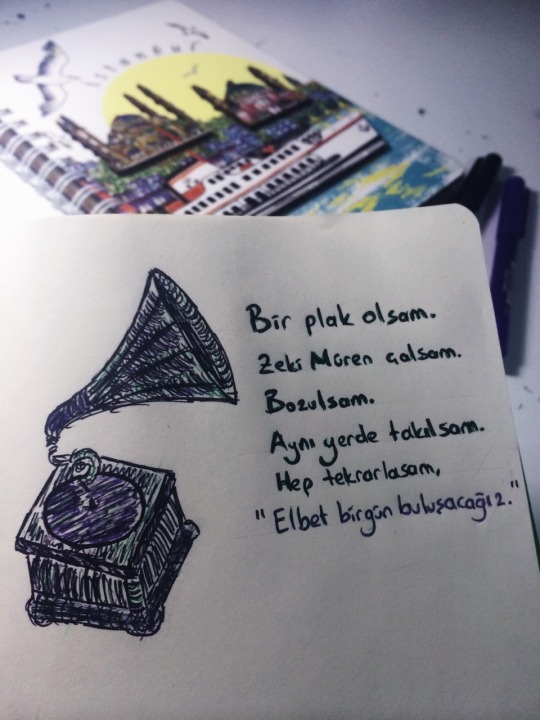 istanbul
Bir plak olsam.
Zeki Müren çalsam.
Bozulsam.
Aynı yerde takılsam.
Hep tekrarlasam,
"Elbet birgün buluşacağız."